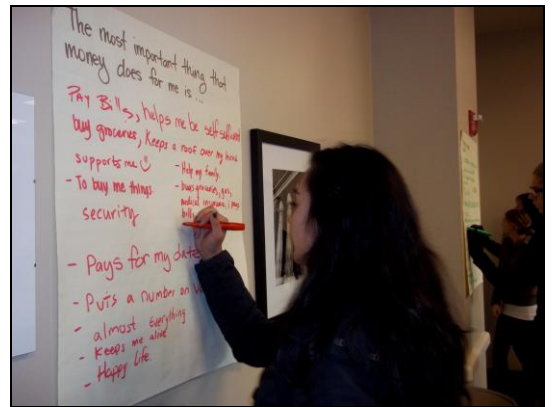 The most important thing that
money does for me is ...
PAY Bills, helps me be self sufficient
buy groceries, Keeps a roof over my head
supports me
- To buy me things
security
- Help my family
- buys groceries, gas,
medical insurance, i pays
bills
- Pays for my dates
- Puts a number on
- almost everything
- Keeps me alive
- Happy life.